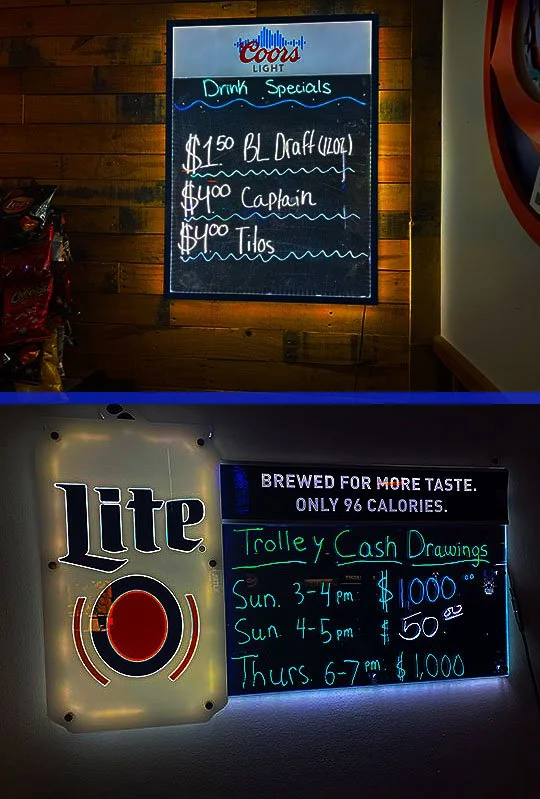 Coors
LIGHT
Drink Specials
$1.50 BL Draft (12oz)
$4.00 Captain
$4.00 Titos
Lite
BREWED FOR MORE TASTE.
ONLY 96 CALORIES.
Trolley Cash Drawings
Sun. 3-4 pm $1,000.00
Sun. 4-5 pm $50.00
Thurs. 6-7 pm. $1,000